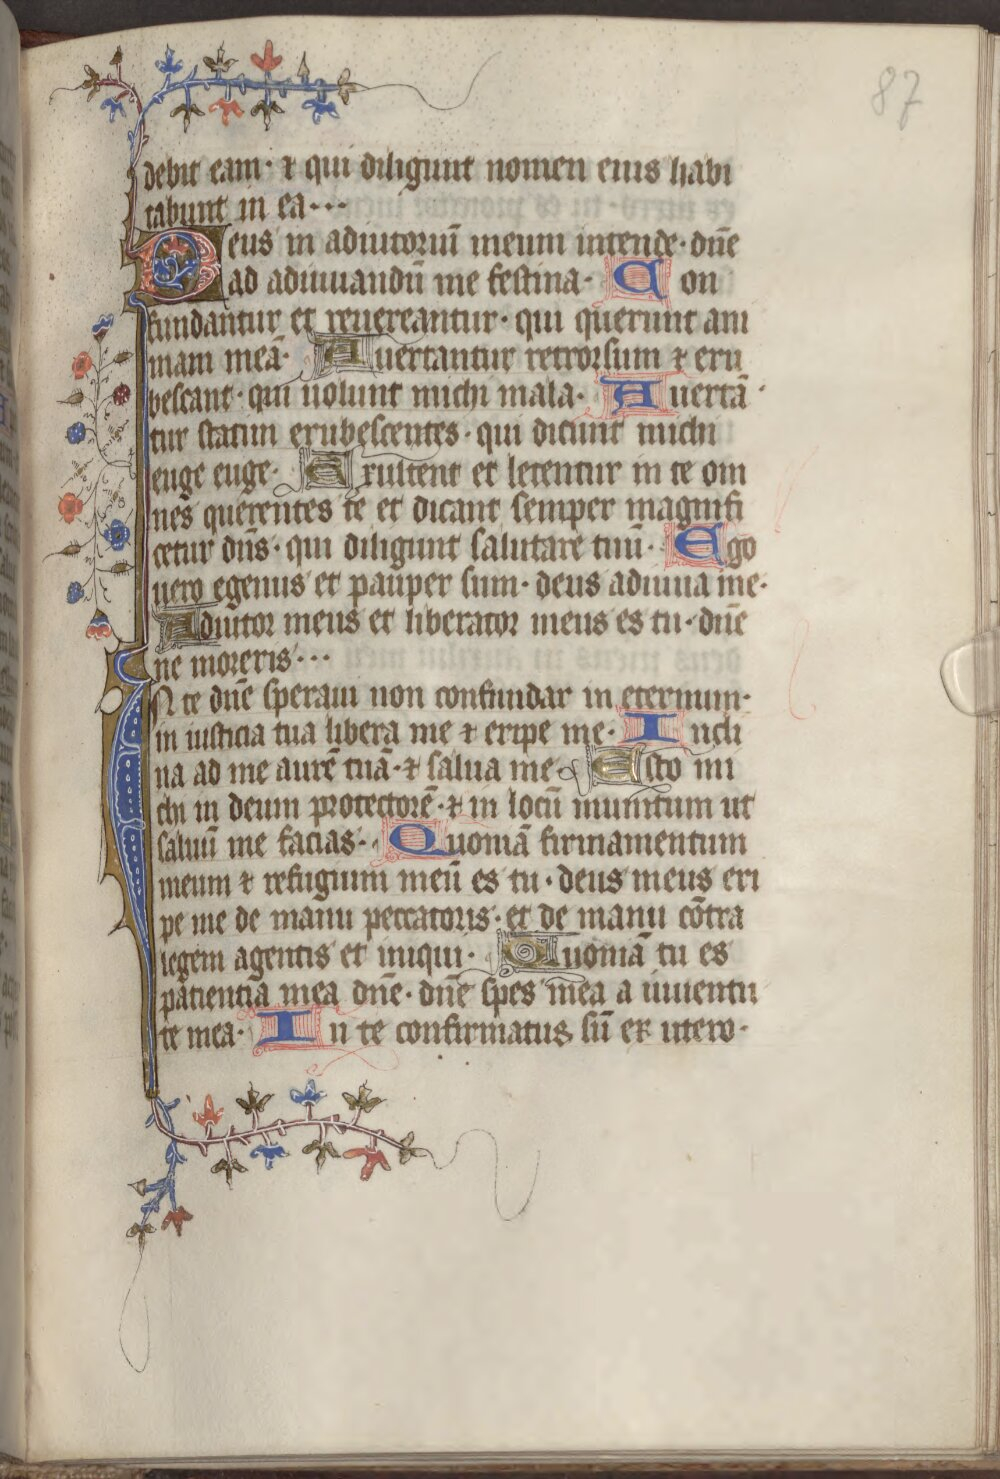 87
debit eam· ⁊ qui diligunt nomen eius habi
tabunt in ea···
Deus in adiutoriū meum intende· dn̄e
ad adiuuandū me festina· Con
fundantur et reuereantur· qui querunt ani
mam meā· Auertantur retrorsum ⁊ eru
bescant· qui uolunt michi mala· Auertā
tur statim erubescentes· qui dicunt michi
euge euge· Exultent et letentur in te om
nes querentes te et dicant semper magnifi
cetur dn̄s· qui diligunt salutare tuū· Ego
uero egenus et pauper sum· deus adiuua me·
Adiutor meus et liberator meus es tu· dn̄e
ne moreris···
IN te dn̄e speraui non confundar in eternum·
in iusticia tua libera me ⁊ eripe me· Incli
na ad me aurē tuā· ⁊ salua me Esto mi
chi in deum protectorē· ⁊ in locū munitum ut
saluū me facias· Quoniā firmamentum
meum ⁊ refugium meū es tu· deus meus eri
pe me de manu peccatoris· et de manu cōtra
legem agentis et iniqui· Quoniā tu es
patientia mea dn̄e· dn̄e spes mea a iuuentu
te mea· In te confirmatus sū ex utero·